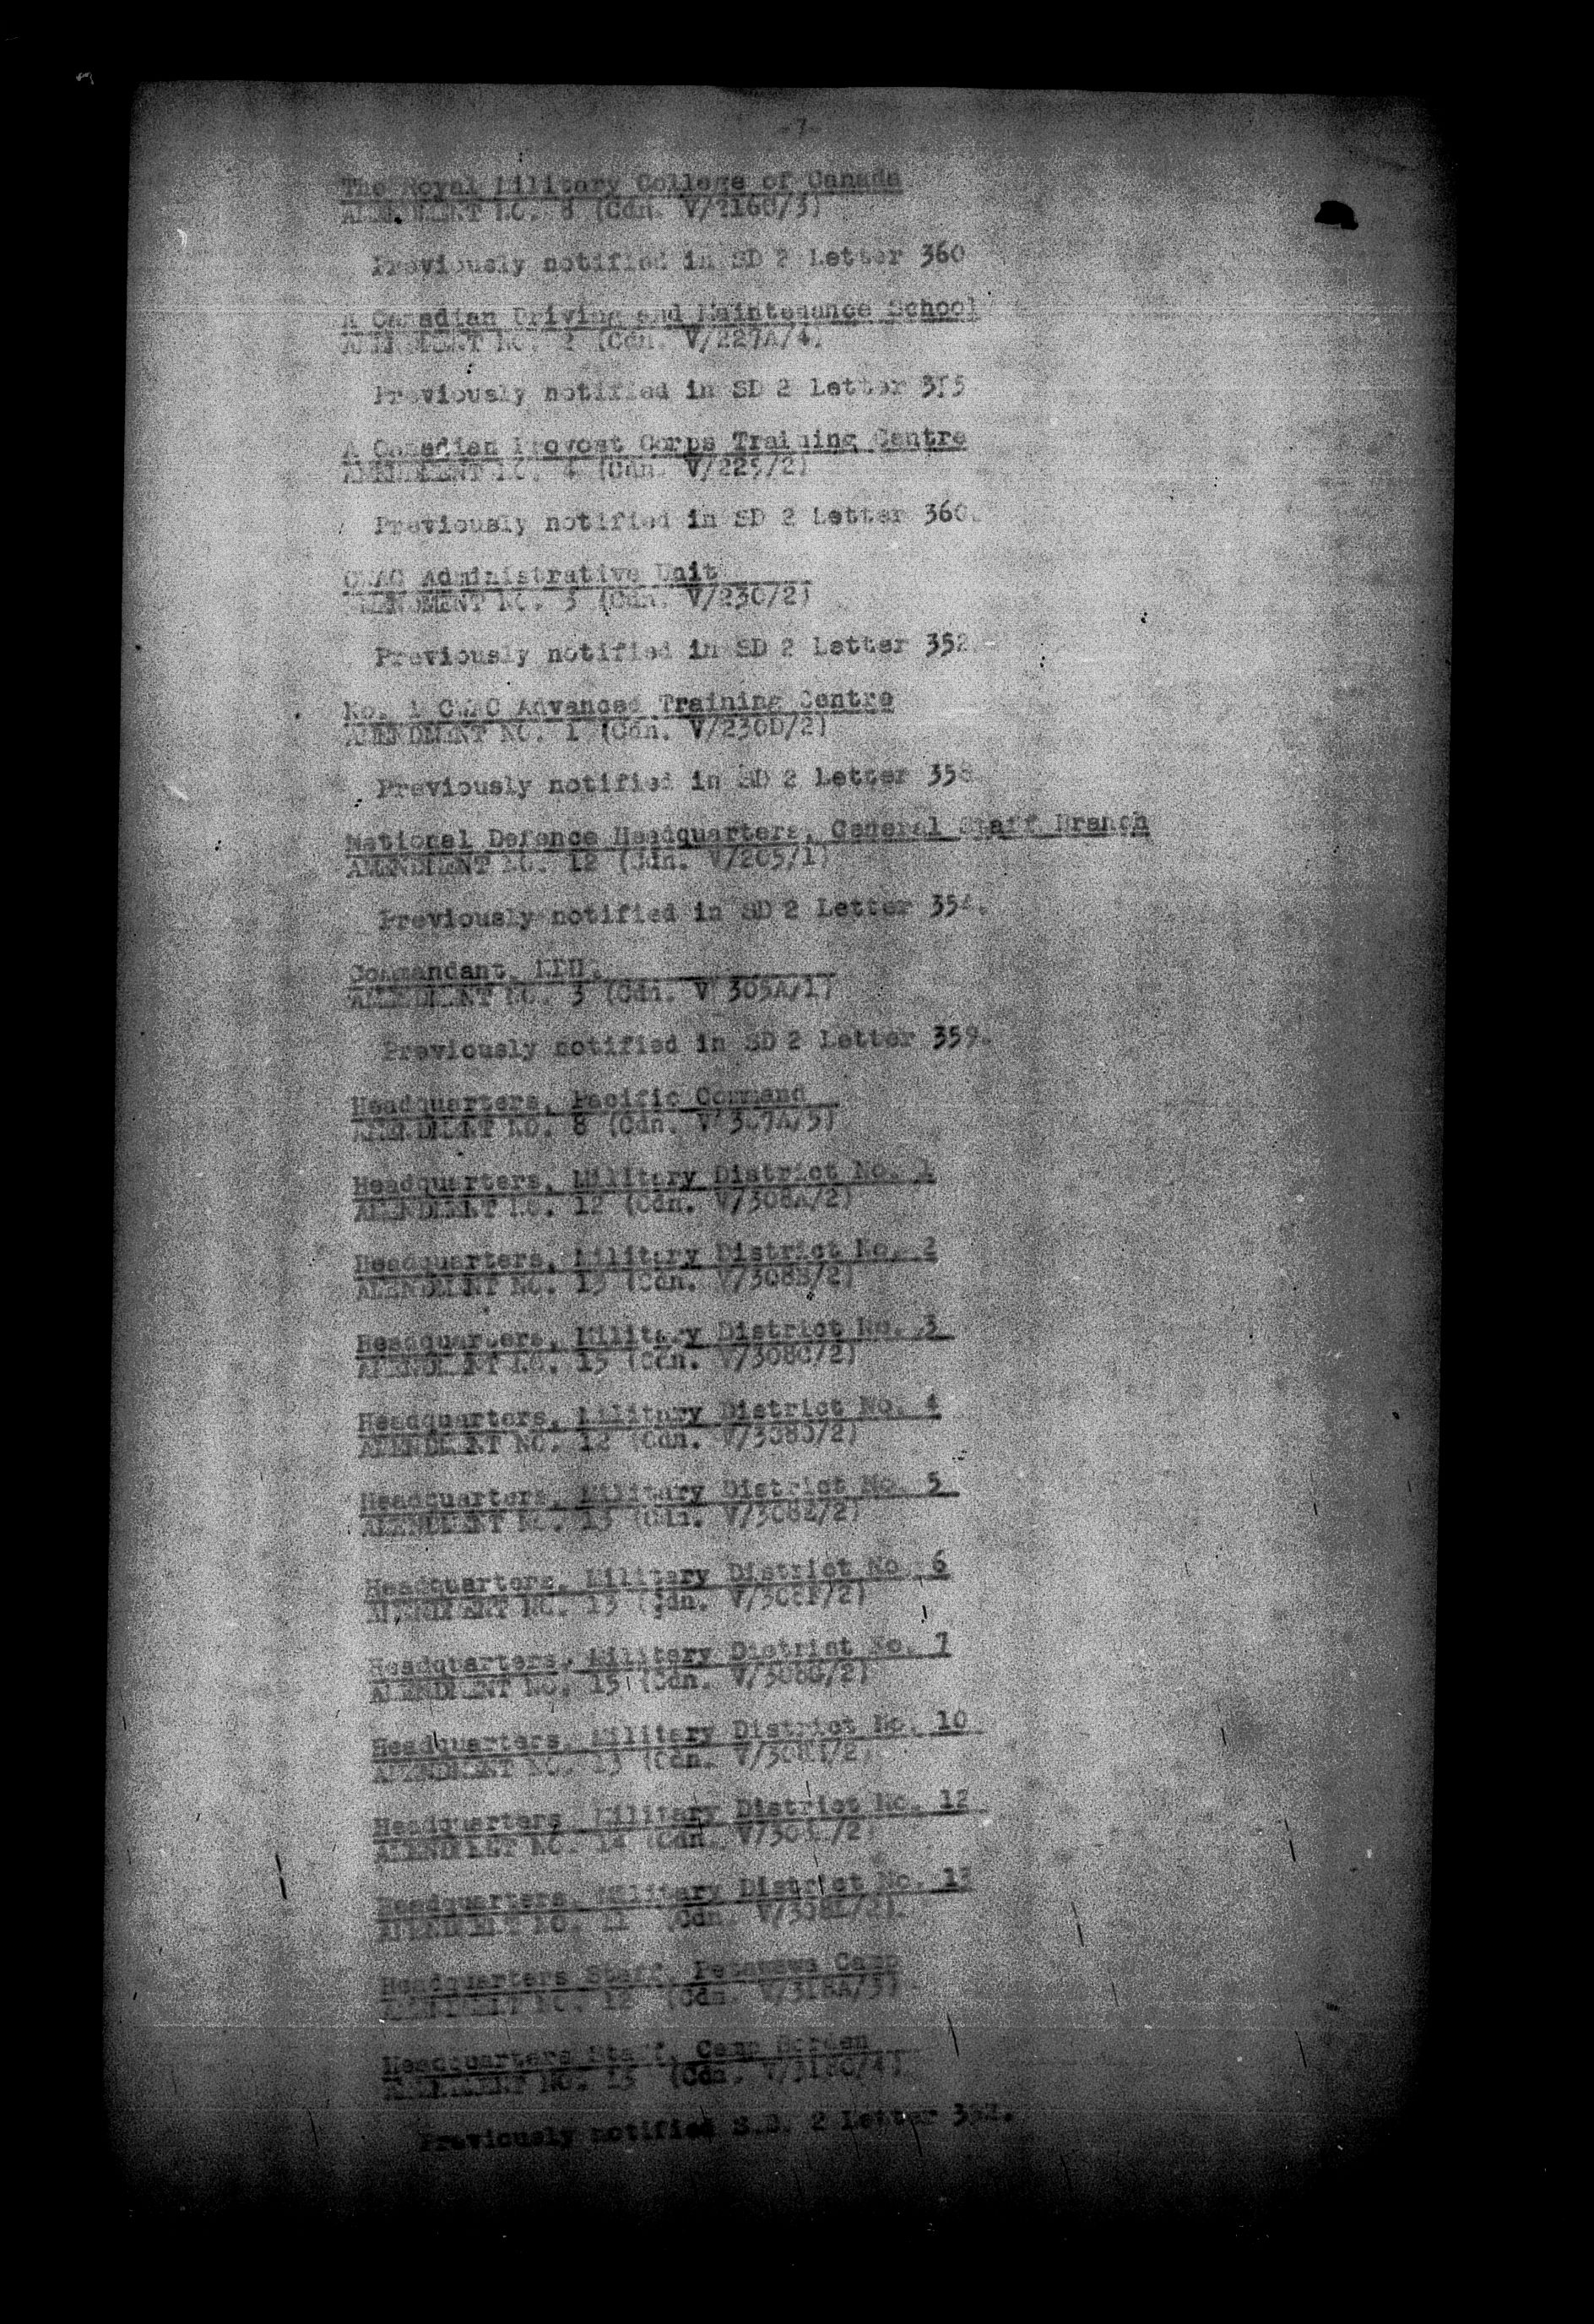 -7-
The Royal Military College of Canada
AMENDMENT NO. 8 (Cdn. V/216B/3)
Previously notified in SD 2 Letter 360
A Canadian Driving and Maintenance School
AMENDMENT NO. 2 (Cdn. V/227A/4)
Previously notified in SD 2 Letter 315
A Canadian Provost Corps Training Centre
AMENDMENT NO. 4 (Cdn. V/225/2)
Previously notified in SD 2 Letter 360.
CWAC Administrative Unit
AMENDMENT NO. 3 (Cdn. V/230/2)
Previously notified in SD 2 Letter 352.
No. 1 CWAC Advanced Training Centre
AMENDMENT NO. 1 (Cdn. V/230D/2)
Previously notified in SD 2 Letter 358
National Defence Headquarters, General Staff Branch
AMENDMENT NO. 12 (Cdn. V/205/1)
Previously notified in SD 2 Letter 354.
Commandant,
AMENDMENT NO. 3 (Cdn. V/305A/1)
Previously notified in SD 2 Letter 359.
Headquarters, Pacific Command
AMENDMENT NO. 8 (Cdn. V/307A/5)
Headquarters, Military District No. 1
AMENDMENT NO. 12 (Cdn. V/308A/2)
Headquarters, Military District No. 2
AMENDMENT NO. 15 (Cdn. V/308B/2)
Headquarters, Military District No. 3
AMENDMENT NO. 15 (Cdn. V/308C/2)
Headquarters, Military District No. 4
AMENDMENT NO. 12 (Cdn. V/308D/2)
Headquarters, Military District No. 5
AMENDMENT NO. 13 (Cdn. V/308E/2)
Headquarters, Military District No. 6
AMENDMENT NO. 13 (Cdn. V/308F/2)
Headquarters, Military District No. 7
AMENDMENT NO. 15 (Cdn. V/308G/2)
Headquarters, Military District No. 10
AMENDMENT NO. 13 (Cdn.
Headquarters, Military District No. 12
AMENDMENT NO. 14 (Cdn.
Headquarters, Military District No. 13
AMENDMENT NO. 11 (Cdn.
Headquarters Staff, Petawawa Camp
AMENDMENT NO. 12 (Cdn. V/318A/5)
Headquarters Staff, Camp Borden
AMENDMENT NO. 15 (Cdn. V/318C/4)
Previously notified S.D. 2 Letter